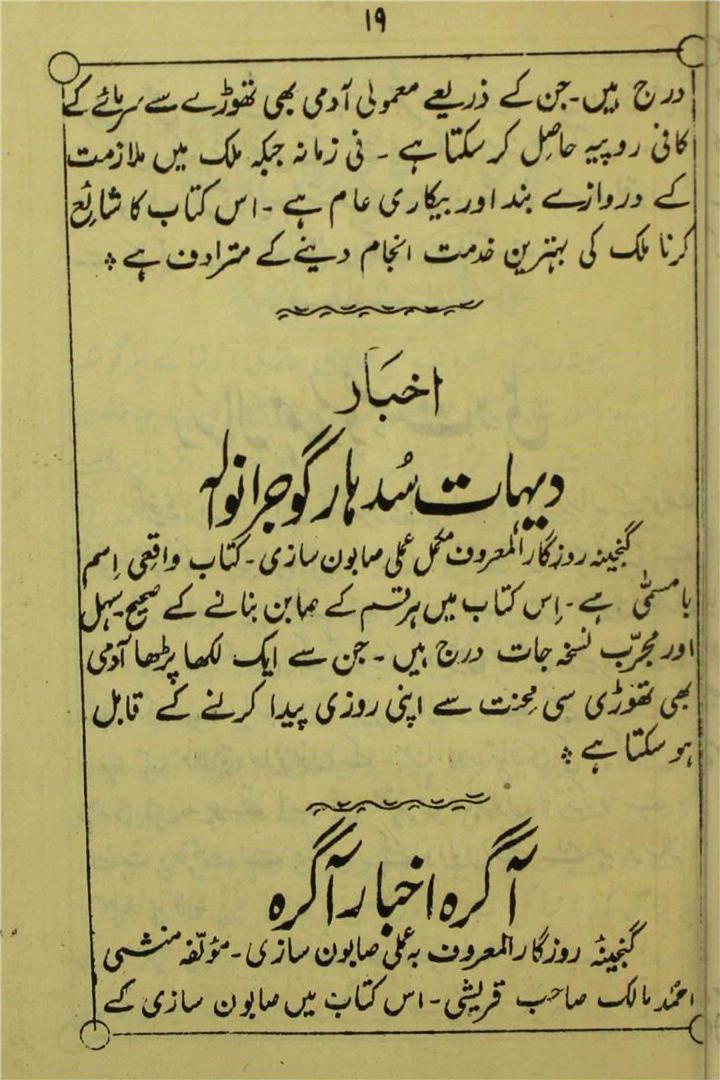 ۱۹
درج ہیں۔ جن کے ذریعے معمولی آدمی بھی تھوڑے سے سرمائے کے
کافی روپیہ حاصل کر سکتا ہے ۔ فی زمانہ جبکہ ملک میں ملازمت
کے دروازے بند اور بیکاری عام ہے ۔ اس کتاب کا شائع
کرنا ملک کی بہترین خدمت انجام دینے کے مترادف ہے ؞
اخبَار
دیہات سُدھار گوجرانوالہ
گنجینہ روزگار المعروف مکمل عملی صابون سازی۔ کتاب واقعی اِسم
بامسمّٰی ہے۔ اِس کتاب میں ہر قسم کے صابن بنانے کے صحیح سہل
اور مجرّب نسخہ جات درج ہیں ۔ جن سے ایک لکھا پڑھا آدمی
بھی تھوڑی سی محنت سے اپنی روزی پیدا کرنے کے قابل
ہو سکتا ہے ؞
آگرہ اخبار آگرہ
گنجینۂ روزگار المعروف بہ عملی صابون سازی۔ مؤلّفہ منشی
احمد مالک صاحب قریشی۔ اس کتاب میں صابون سازی کے